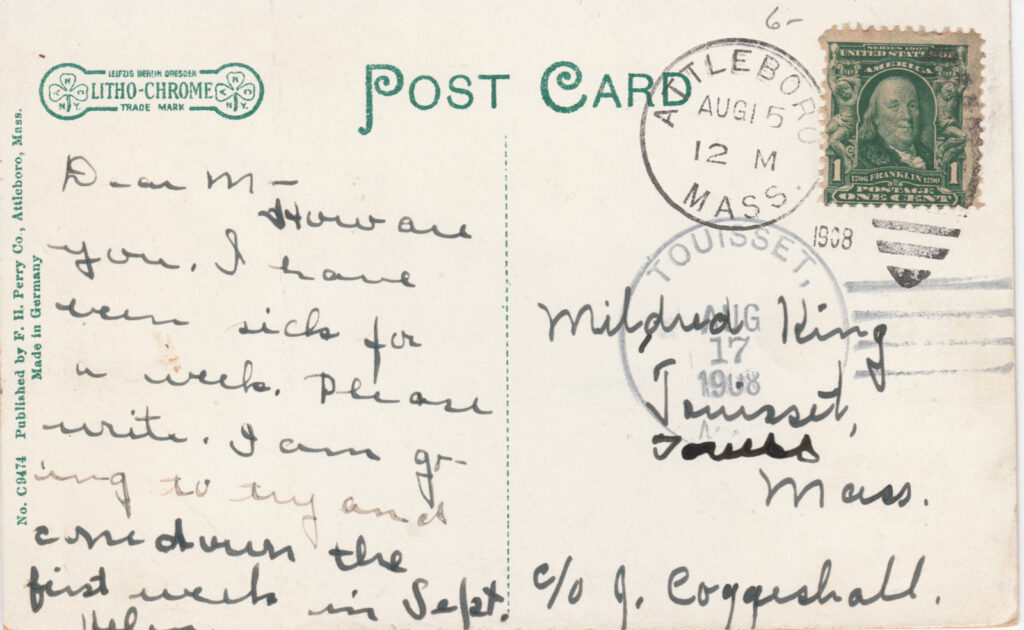 6-
LEIPZIG BERLIN DRESDEN
LITHO-CHROME
TRADE MARK
N Y.
N Y.
POST CARD
ATTLEBORO
AUG 15
12 M
MASS.
1908
SERIES 1902
UNITED STATES
AMERICA
1706 FRANKLIN 1790
1 1
POSTAGE
ONE CENT
TOUISSET,
AUG
17
1908
No. C9474 Published by F. H. Perry Co., Attleboro, Mass.
Made in Germany
Dear M—
How are
you. I have
been sick for
a week. Please
write. I am go-
ing to try and
come down the
first week in Sept.
Helen
Mildred King
Touisset,
Mass.
c/o J. Coggeshall.